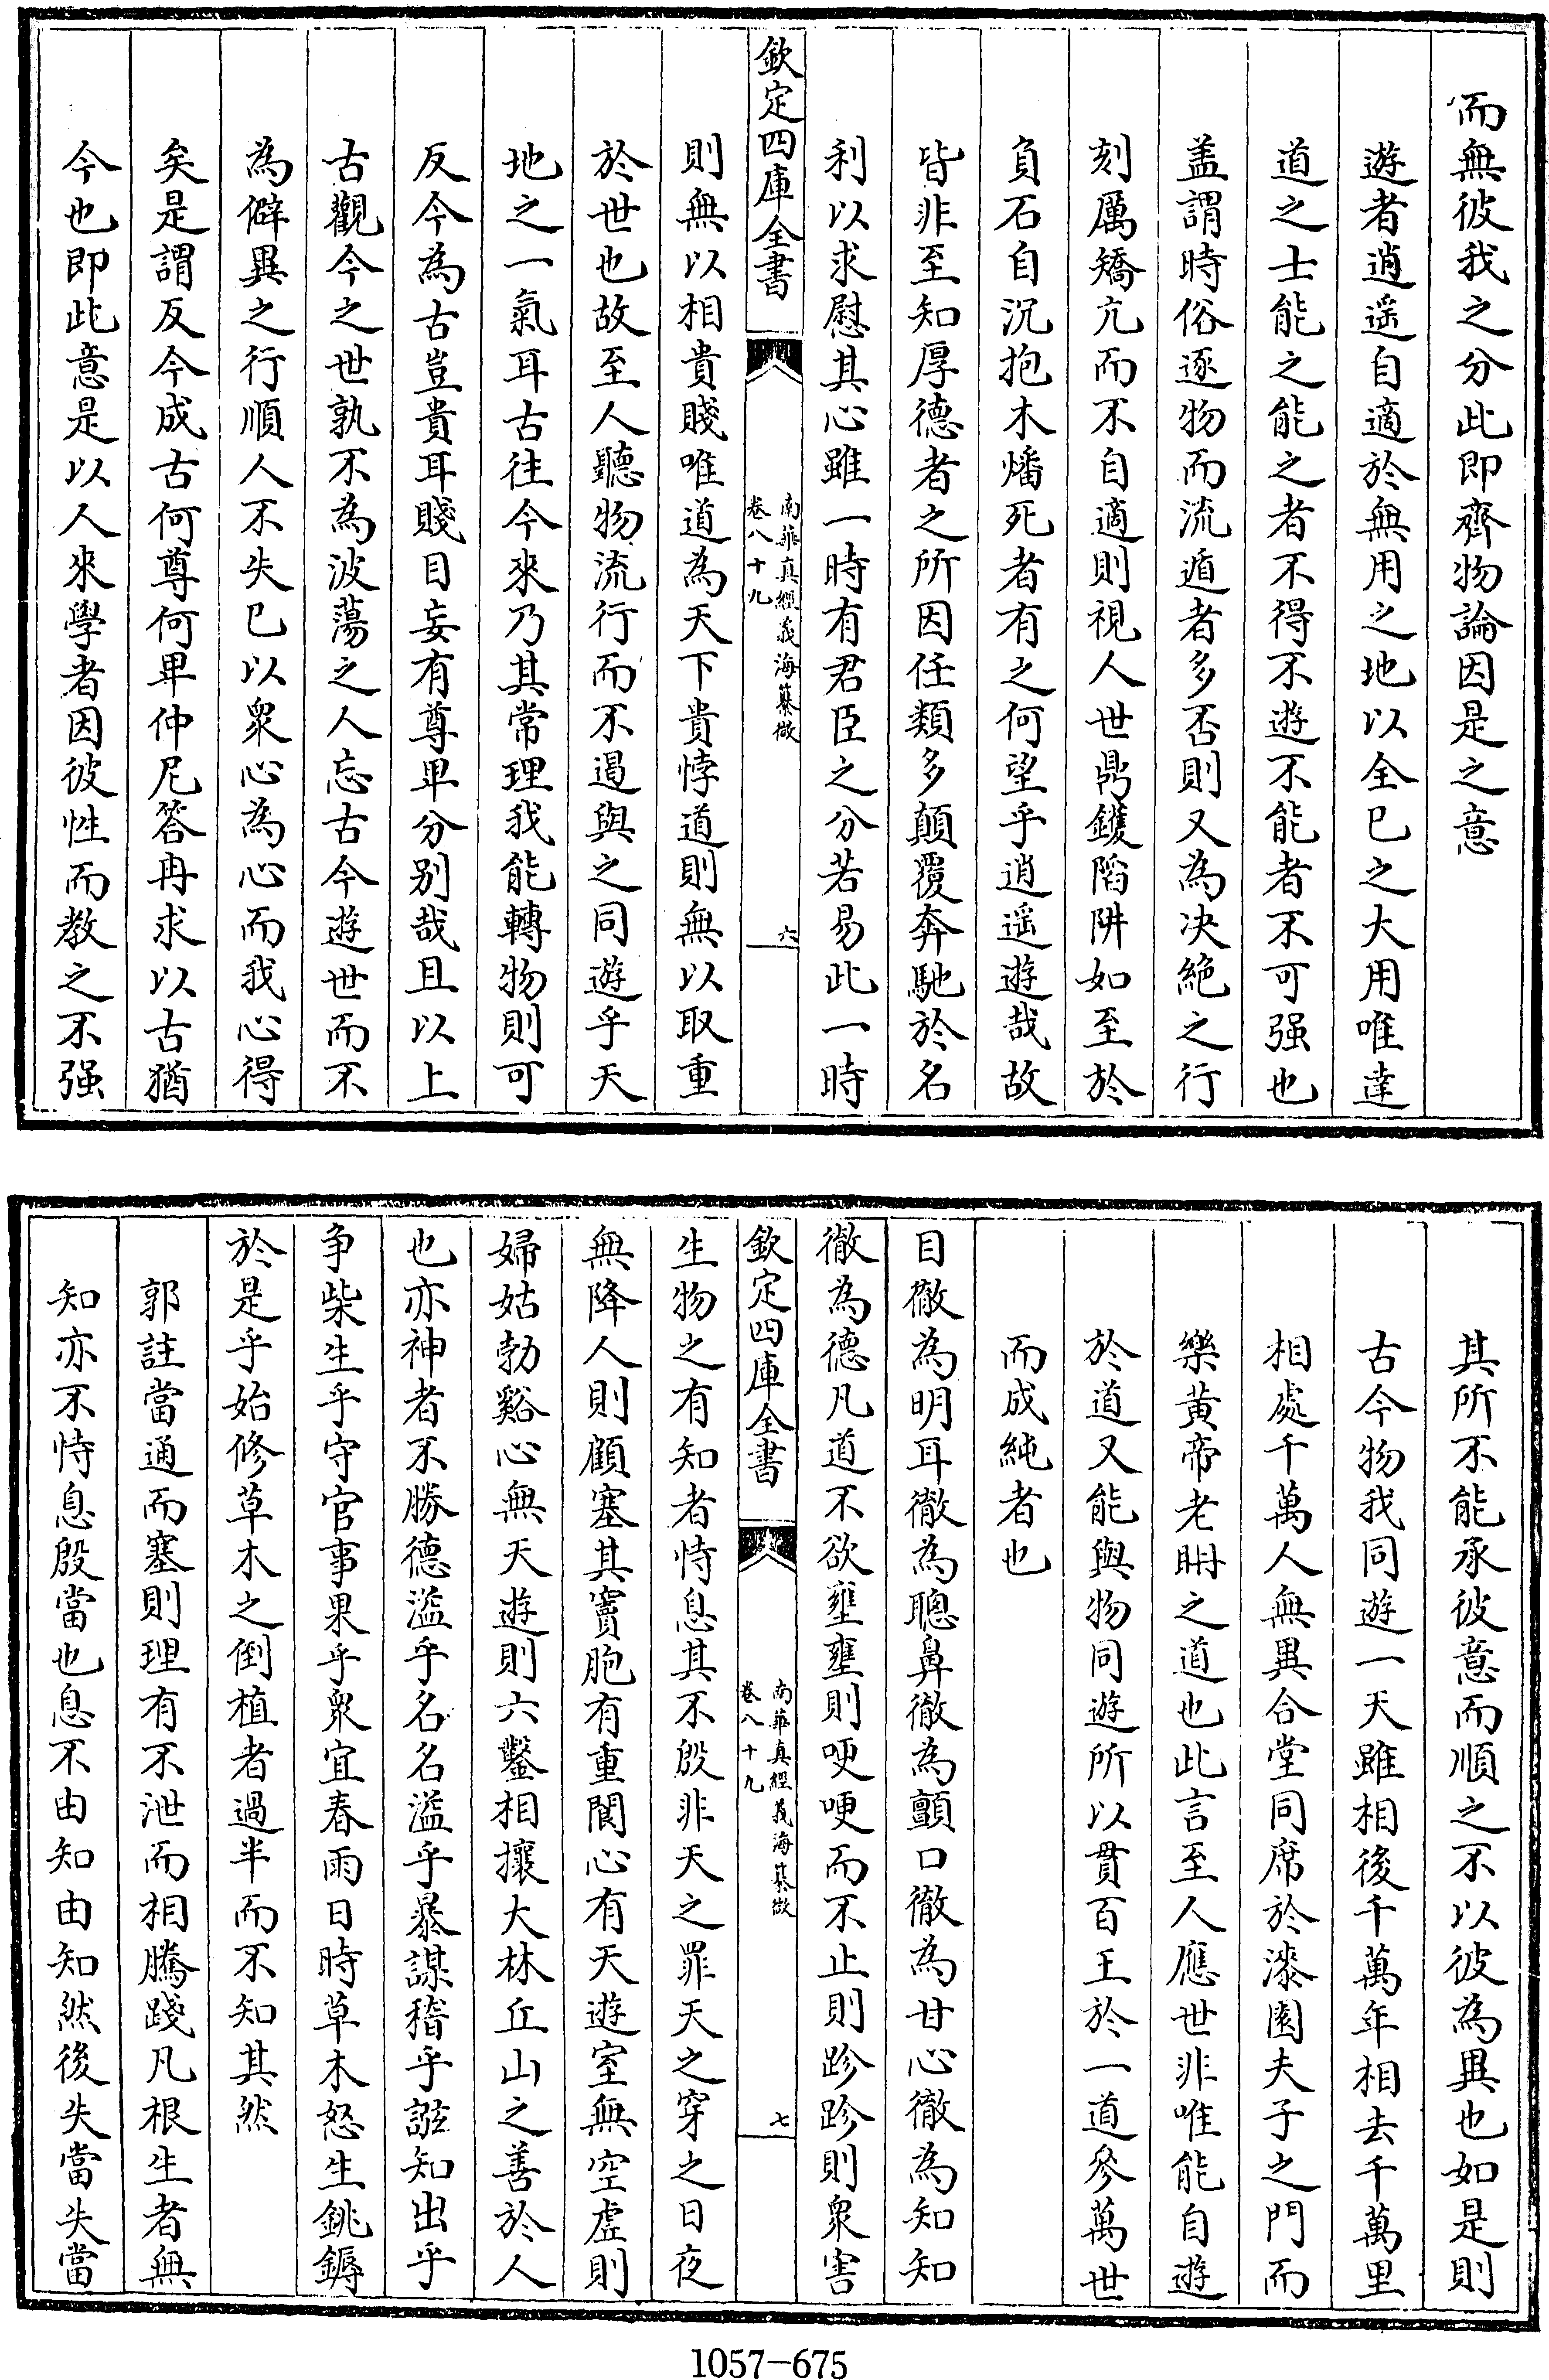 而無彼我之分此即齊物論因是之意
遊者逍遥自適於無用之地以全已之大用唯達
道之士能之能之者不得不遊不能者不可强也
盖謂時俗逐物而流遁者多否則又為决絶之行
刻厲矯亢而不自適則視人世鼎鑊陷阱如至於
負石自沉抱木燔死者有之何望乎逍遥遊哉故
皆非至知厚德者之所因任類多顛覆奔馳於名
利以求慰其心雖一時有君臣之分若易此一時
欽定四庫全書
南華真經義海纂微
卷八十九
六
則無以相貴賤唯道為天下貴悖道則無以取重
於世也故至人聽物流行而不遏與之同遊乎天
地之一氣耳古往今來乃其常理我能轉物則可
反今為古豈貴耳賤目妄有尊卑分别哉且以上
古觀今之世孰不為波蕩之人忘古今遊世而不
為僻異之行順人不失已以衆心為心而我心得
矣是謂反今成古何尊何卑仲尼答冉求以古猶
今也即此意是以人來學者因彼性而教之不强
其所不能承彼意而順之不以彼為異也如是則
古今物我同遊一天雖相後千萬年相去千萬里
相處千萬人無異合堂同席於漆園夫子之門而
樂黄帝老耼之道也此言至人應世非唯能自遊
於道又能與物同遊所以貫百王於一道參萬世
而成純者也
目徹為明耳徹為聰鼻徹為顫口徹為甘心徹為知知
徹為德凡道不欲壅壅則哽哽而不止則跈跈則衆害
欽定四庫全書
南華真經義海纂微
卷八十九
七
生物之有知者恃息其不殷非天之罪天之穿之日夜
無降人則顧塞其竇胞有重閬心有天遊室無空虚則
婦姑勃谿心無天遊則六鑿相攘大林丘山之善於人
也亦神者不勝德溢乎名名溢乎暴謀稽乎誸知出乎
争柴生乎守官事果乎衆宜春雨日時草木怒生銚鎒
於是乎始修草木之倒植者過半而不知其然
郭註當通而塞則理有不泄而相騰踐凡根生者無
知亦不恃息殷當也息不由知由知然後失當失當
1057-675